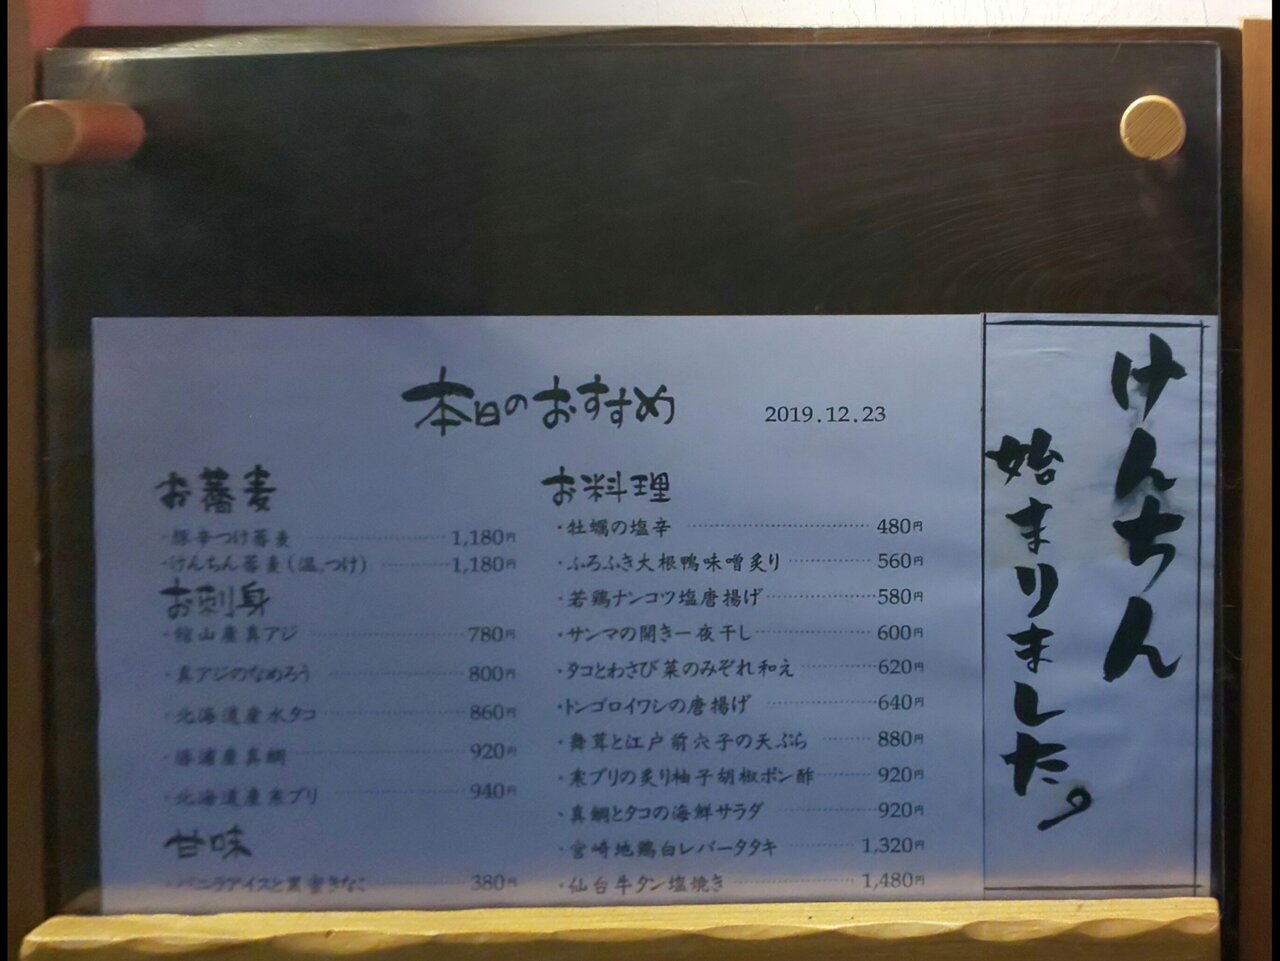 本日のおすすめ
2019.12.23
お蕎麦
・豚辛つけ蕎麦 1,180円
・けんちん蕎麦(温、つけ) 1,180円
お刺身
・館山産真アジ 780円
・真アジのなめろう 800円
・北海道産水タコ 860円
・勝浦産真鯛 920円
・北海道産寒ブリ 940円
甘味
・バニラアイスと黒蜜きなこ 380円
お料理
・牡蠣の塩辛 480円
・ふろふき大根鴨味噌炙り 560円
・若鶏ナンコツ塩唐揚げ 580円
・サンマの開き一夜干し 600円
・タコとわさび菜のみぞれ和え 620円
・トンゴロイワシの唐揚げ 640円
・舞茸と江戸前穴子の天ぷら 880円
・寒ブリの炙り柚子胡椒ポン酢 920円
・真鯛とタコの海鮮サラダ 920円
・宮崎地鶏白レバータタキ 1,320円
・仙台牛タン塩焼き 1,480円
けんちん
始まりました。